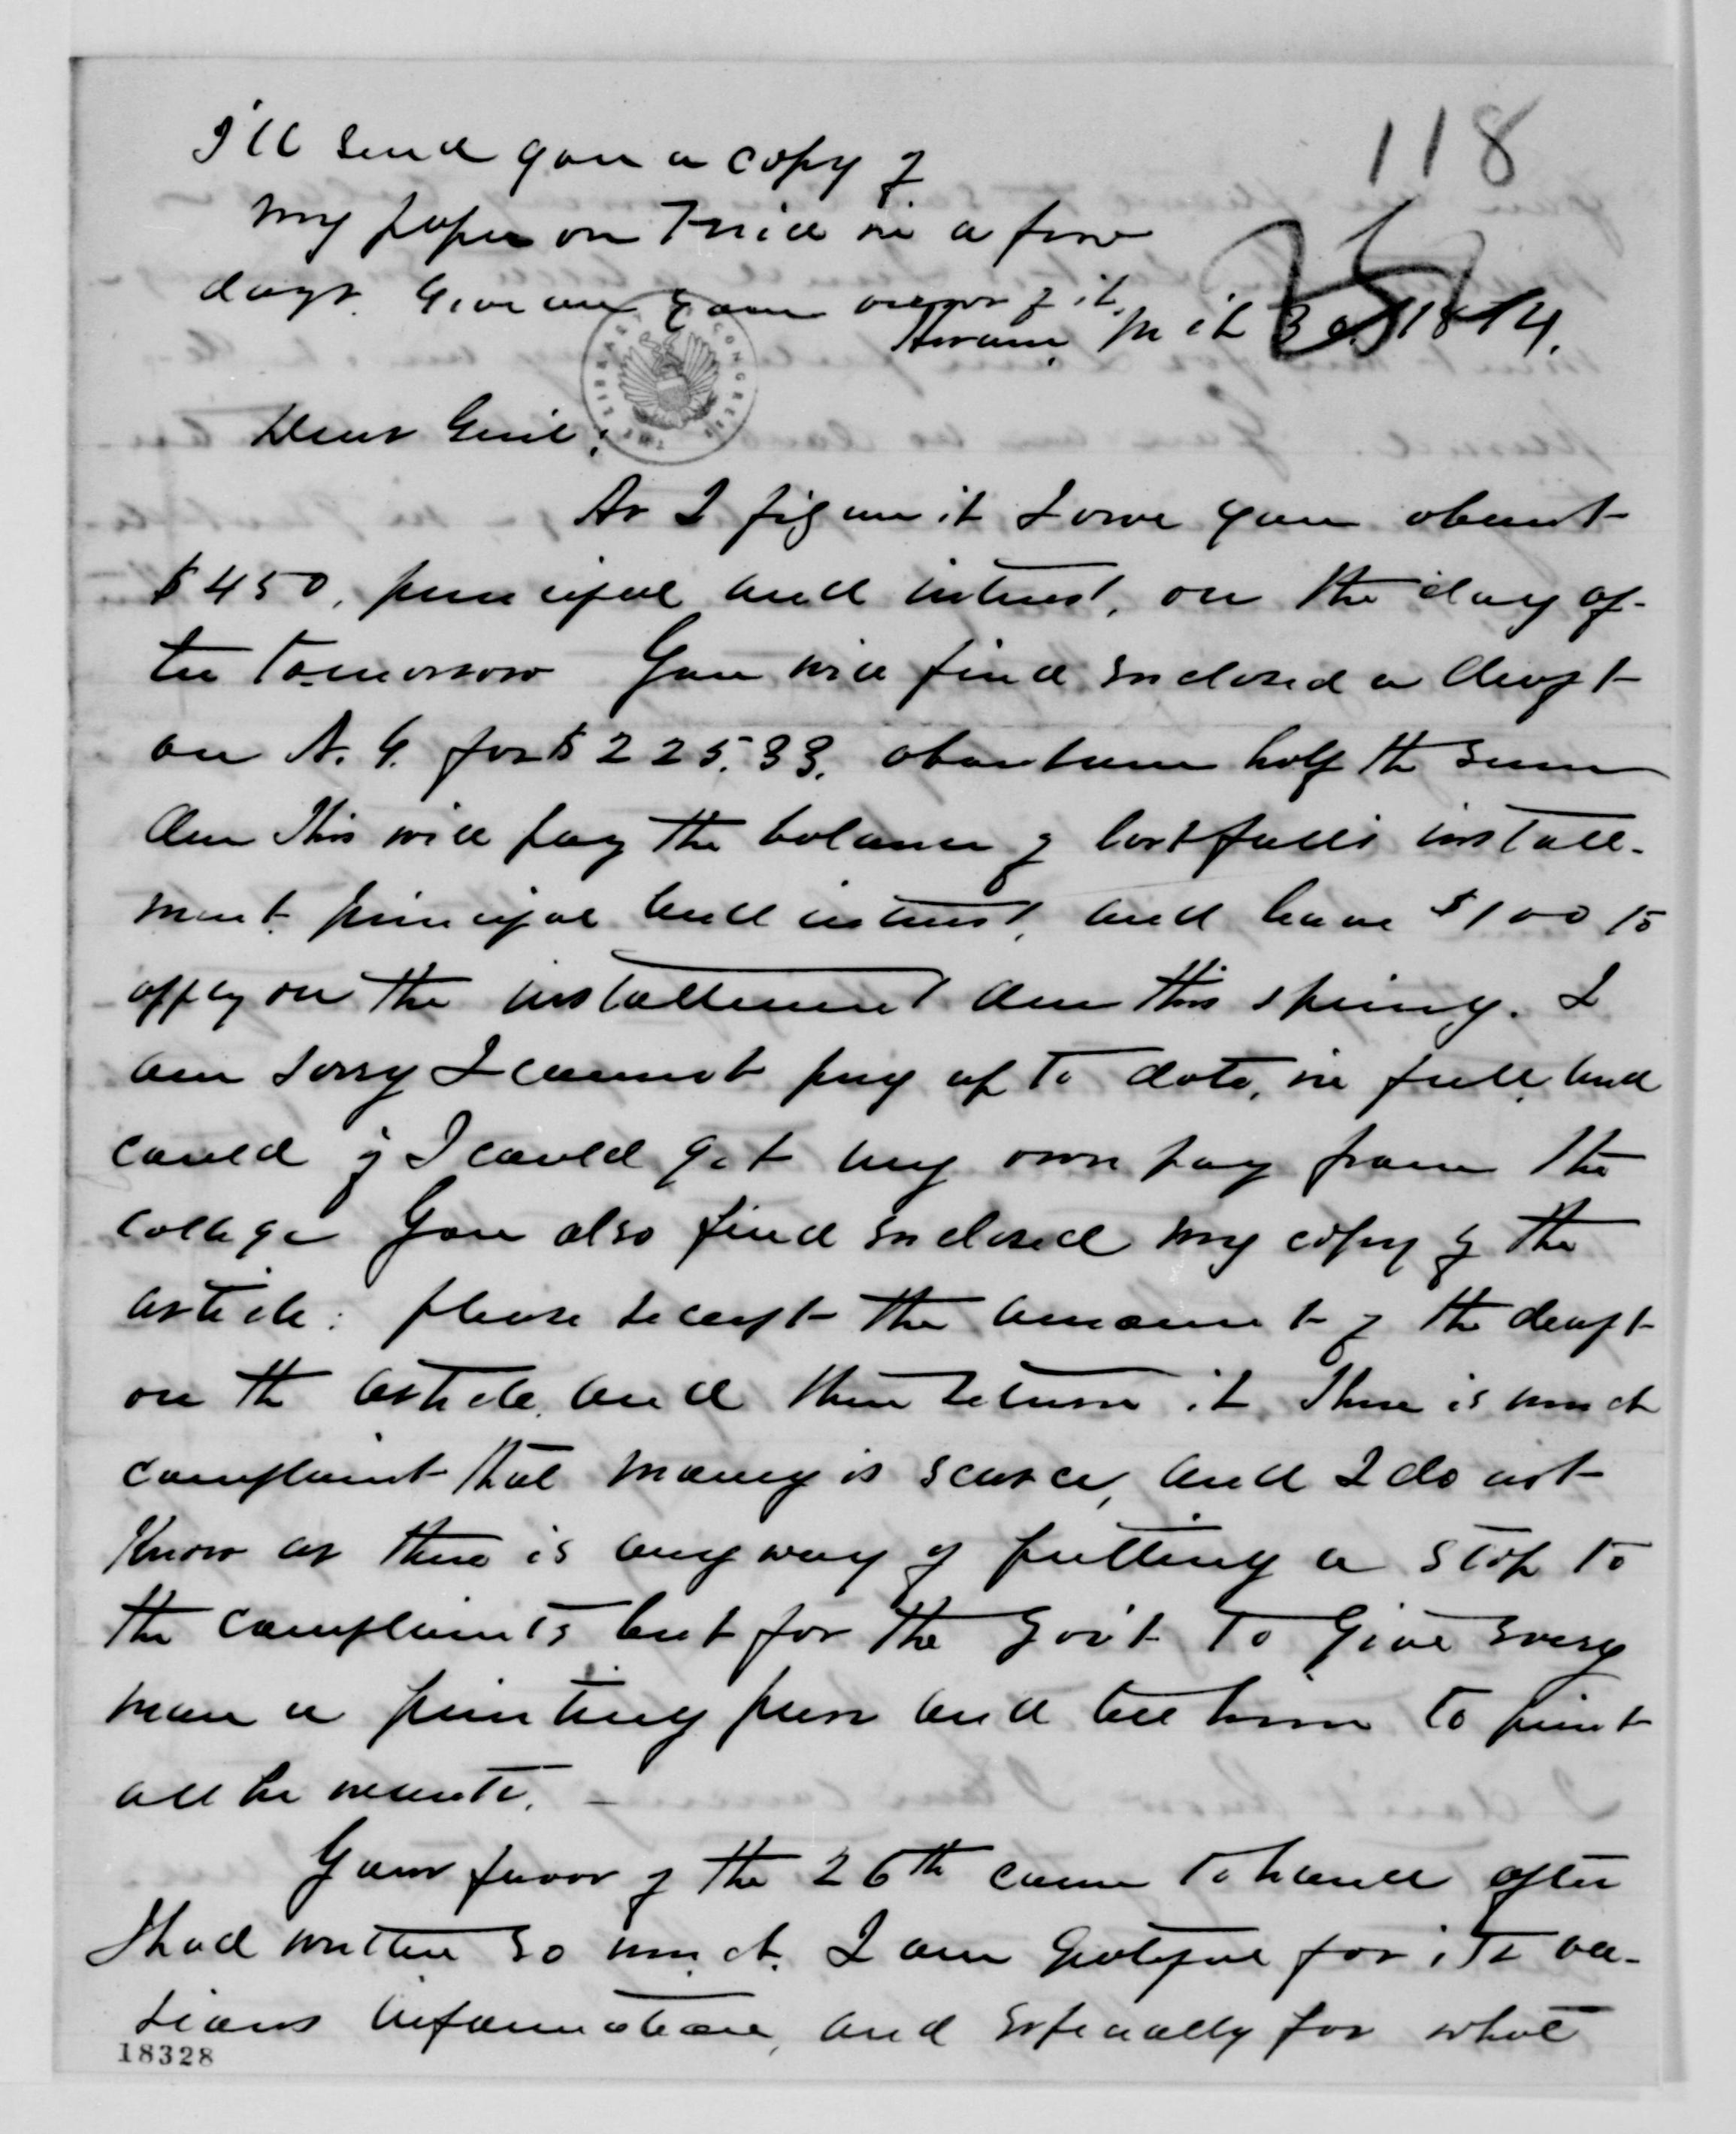 118
I'll send you a copy of
my paper on in a few
days. Give me your views of it.
Hiram, Mch 30, 1874.
Dear Genl:
As I figure it, I owe you about
$450, principal and interest, on the day af-
ter tomorrow You will find enclosed a draft
on N.Y. for $225.33, about one half the sum
due This will pay the balance of last fall's install-
ment principal and interest, and leave $100 to
apply on the installment due this spring. I
am sorry I cannot pay up to date, in full, and
could if I could get my own pay from the
College You also find enclosed my copy of the
article: please receipt the amount of the draft
on the article, and then return it. There is much
complaint that money is scarce, and I do not
know as there is any way of putting a stop to
the complaints but for the Gov't to give every
man a printing press and tell him to print
all he wants.
Your favor of the 26th came to hand after
I had written so much. I am grateful for its va-
rious information, and especially for what
18328
THE LIBRARY OF CONGRESS